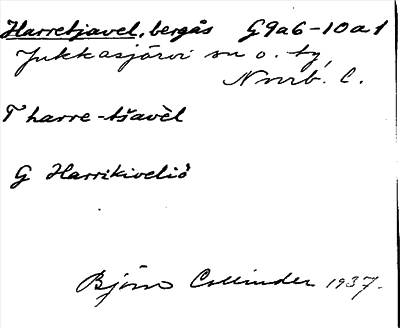 Harretjavel, bergås G9a6-10a1
Jukkasjärvi sn o. ty,
Nrrb. l.
T harre-tšavèl
G Harrikiveliö
Björn Collinder 1937.